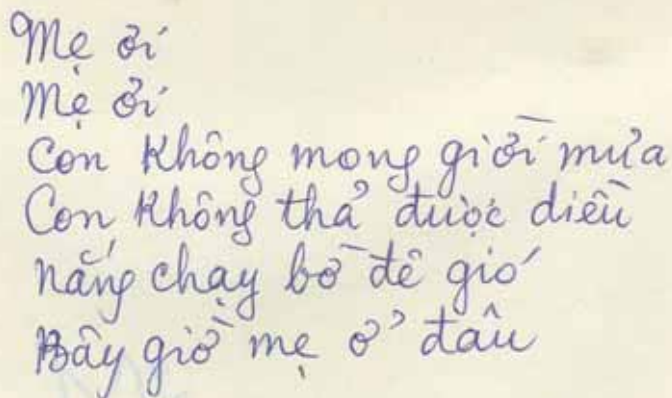 Mẹ ơi
Mẹ ơi
Con không mong giời mưa
Con không thả được diều
Nắng chạy bờ đê gió
Bây giờ mẹ ở đâu